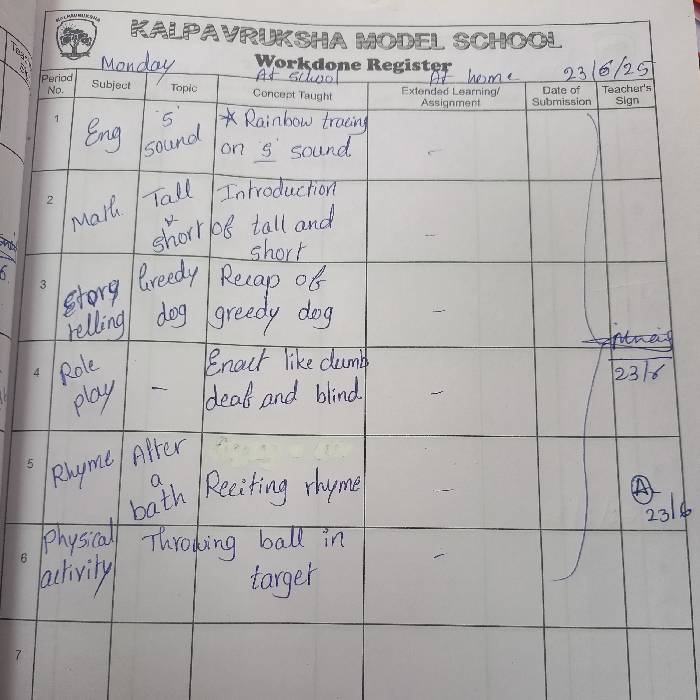 KALPAVRUKSHA
KALPAVRUKSHA MODEL SCHOOL
Monday Workdone Register 23/6/25
At school At home
Period No. Subject Topic Concept Taught Extended Learning/ Assignment Date of Submission Teacher's Sign
1 Eng 's' sound * Rainbow tracing on 's' sound -
2 Math Tall & short Introduction of tall and short -
3 Story telling Greedy dog Recap of greedy dog -
4 Role play - Enact like dumb deaf and blind -
23/6
5 Rhyme After a bath Reciting rhyme -
A 23/6
6 Physical activity Throwing ball in target -
7